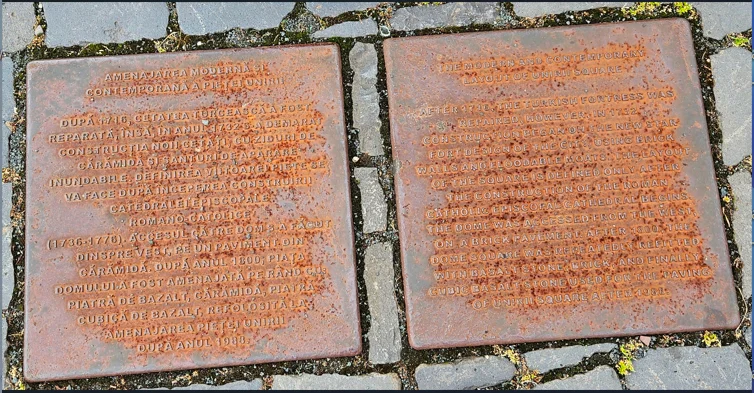 AMENAJAREA MODERNĂ ȘI
CONTEMPORANĂ A PIEȚEI UNIRII
DUPĂ 1716, CETATEA TURCEASCĂ A FOST
REPARATĂ, ÎNSĂ ÎN ANUL 1732 S-A DEMARAT
CONSTRUCȚIA NOII CETĂȚI, CU ZIDURI DE
CĂRĂMIDĂ ȘI ȘANȚURI DE APĂRARE
INUNDABILE. DEFINIREA VIITOAREI PIEȚE SE
VA FACE DUPĂ ÎNCEPEREA CONSTRUIRII
CATEDRALEI EPISCOPALE
ROMANO-CATOLICE
(1736-1770). ACCESUL CĂTRE DOM S-A FĂCUT
DINSPRE VEST, PE UN PAVIMENT DIN
CĂRĂMIDĂ. DUPĂ ANUL 1800, PIAȚA
DOMULUI A FOST AMENAJATĂ PE RÂND CU
PIATRĂ DE BAZALT, CĂRĂMIDĂ, PIATRĂ
CUBICĂ DE BAZALT, REFOLOSITĂ LA
AMENAJAREA PIEȚEI UNIRII
DUPĂ ANUL 1988.
THE MODERN AND CONTEMPORARY
LAYOUT OF UNIRII SQUARE
AFTER 1716, THE TURKISH FORTRESS WAS
REPAIRED, HOWEVER, IN 1732, THE
CONSTRUCTION BEGAN ON THE NEW
FORT DESIGN OF THE CITY, USING BRICK
WALLS AND FLOODABLE MOATS. THE
OF THE SQUARE IS DEFINED ONLY AFTER
THE CONSTRUCTION OF THE ROMAN
CATHOLIC EPISCOPAL CATHEDRAL BEGINS.
THE DOME WAS ACCESSED FROM THE WEST,
ON A BRICK PAVEMENT. AFTER 1800, THE
DOME SQUARE WAS
WITH BASALT STONE, BRICK, AND FINALLY
CUBIC BASALT STONE USED FOR THE PAVING
OF UNIRII SQUARE AFTER 1988.